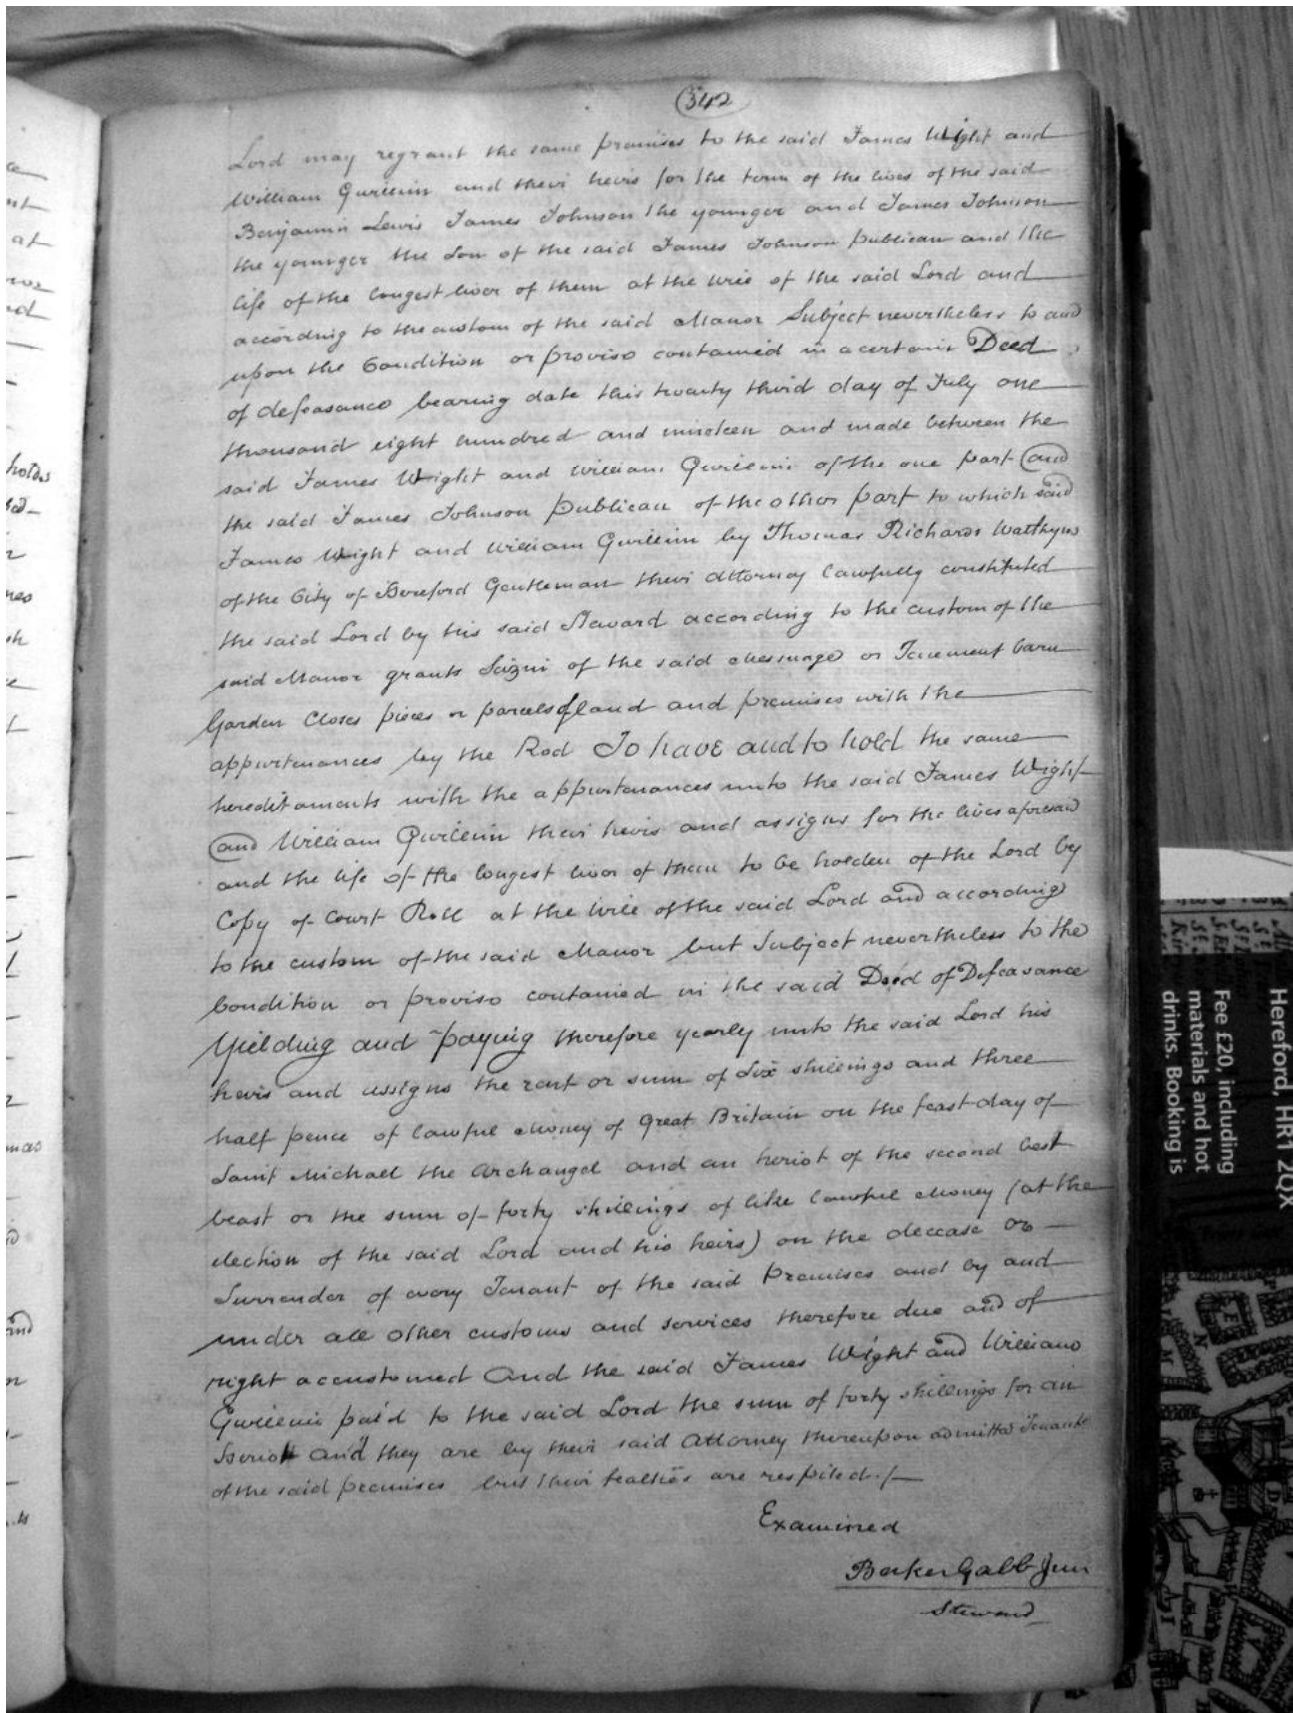 342
Lord may regrant the same premises to the said James Wight and
William Gwillim and their heirs for the term of the lives of the said
Benjamin Lewis James Johnson the younger and James Johnson
the younger the Son of the said James Johnson Publican and the
life of the longest liver of them at the will of the said Lord and
according to the custom of the said Manor Subject nevertheless to and
upon the Condition or proviso contained in a certain Deed
of defeasance bearing date this twenty third day of July one
thousand eight hundred and nineteen and made between the
said James Wight and William Gwillim of the one part and
the said James Johnson Publican of the other part to which said
James Wight and William Gwillim by Thomas Richards Watthyns
of the City of Hereford Gentleman their attorney lawfully constituted
the said Lord by his said Steward according to the custom of the
said Manor grants Seizin of the said Messuage or Tenement barn
Garden Closes pieces or parcels of land and premises with the
appurtenances by the Rod To have and to hold the same
hereditaments with the appurtenances unto the said James Wight
and William Gwillim their heirs and assigns for the lives aforesaid
and the life of the longest liver of them to be holden of the Lord by
Copy of Court Roll at the will of the said Lord and according
to the custom of the said Manor but Subject nevertheless to the
Condition or proviso contained in the said Deed of Defeasance
Yielding and paying therefore yearly unto the said Lord his
heirs and assigns the rent or sum of Six shillings and three
half pence of lawful Money of Great Britain on the feast day of
Saint Michael the Archangel and an heriot of the second best
beast or the sum of forty shillings of like lawful Money (at the
election of the said Lord and his heirs) on the decease or
Surrender of every Tenant of the said Premises and by and
under all other customs and services therefore due and of
right accustomed And the said James Wight and William
Gwillim paid to the said Lord the sum of forty shillings for an
Heriot And they are by their said Attorney thereupon admitted Tenants
of the said premises but their fealties are respited.
Examined
Baker Gabb Jun
Steward
Hereford, HR1 2QX
Fee £20, including
materials and hot
drinks. Booking is